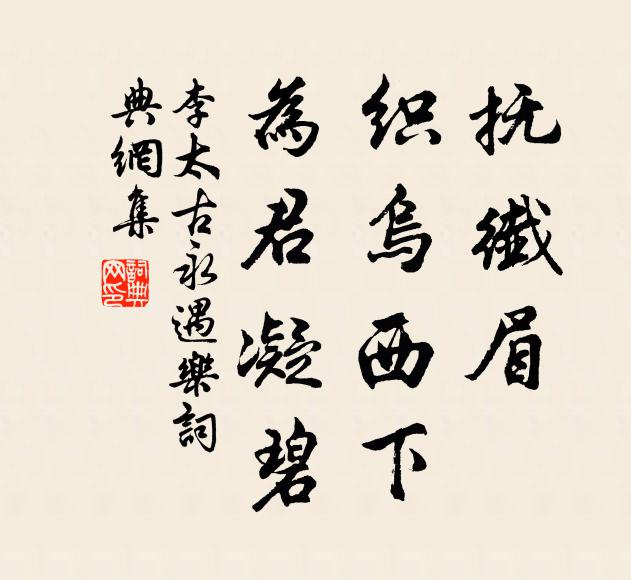 抚纖眉
织烏西下
為君凝碧
李太古永遇樂詞
典網集
詞典
网印